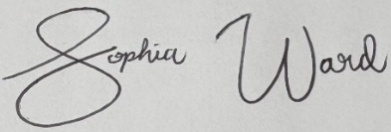 Sophia Ward